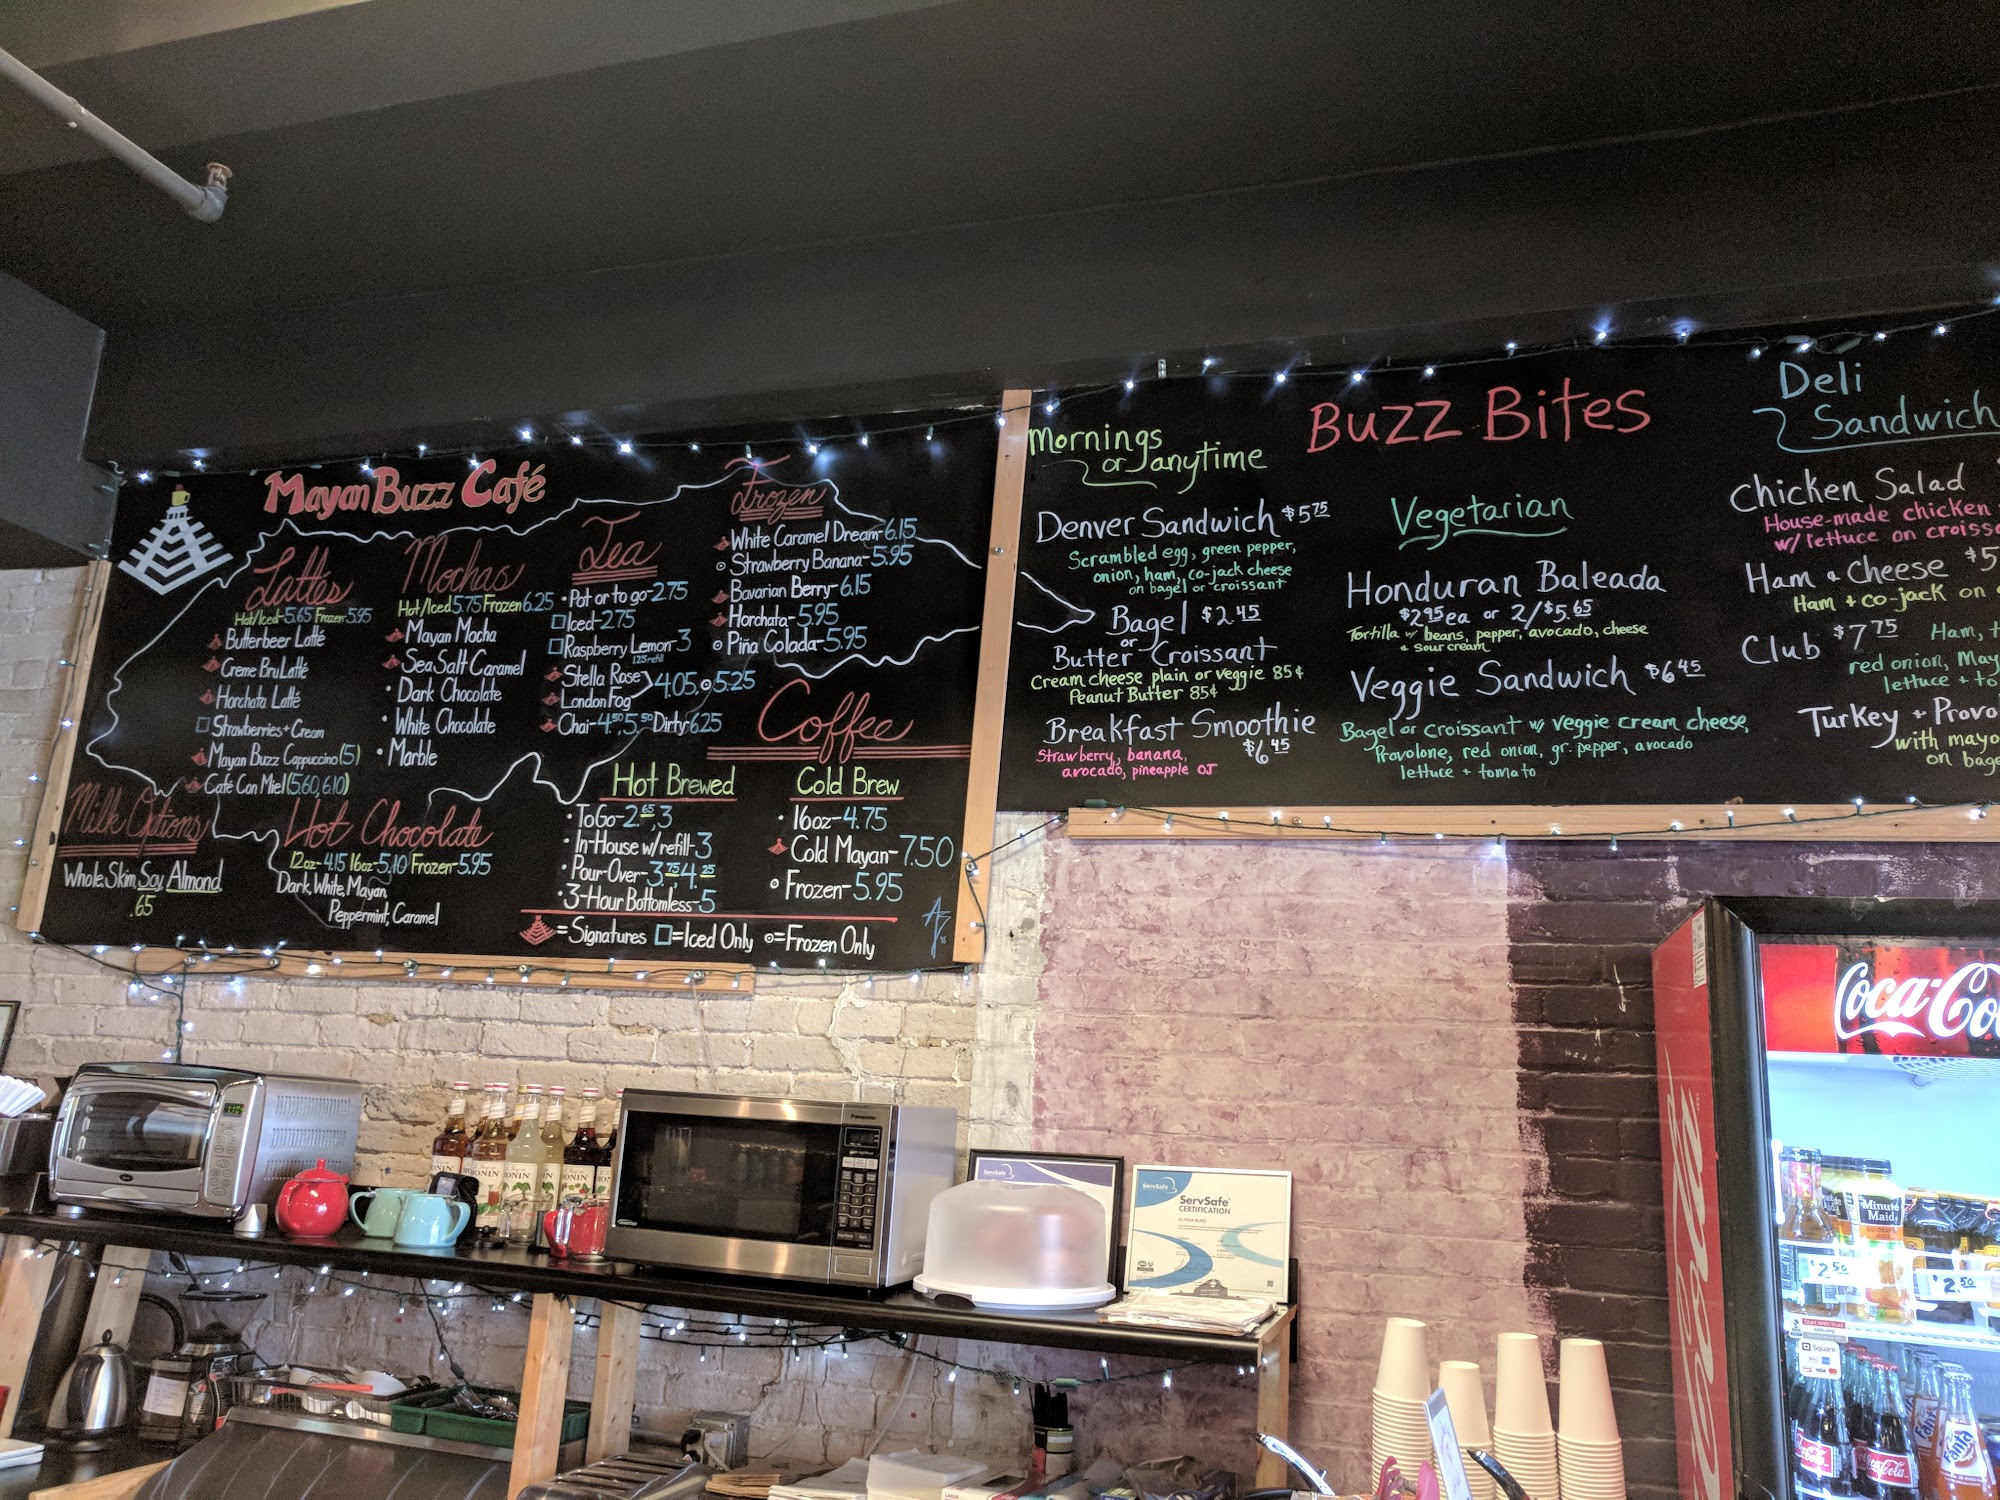 Mayan Buzz Café
Lattés
Hot/Iced-5.65 Frozen-5.95
Butterbeer Latté
Creme Bru Latté
Horchata Latté
Strawberries+Cream
Mayan Buzz Cappuccino (5)
Café Con Miel (5.60, 6.10)
Milk Options
Whole, Skim, Soy, Almond
.65
Mochas
Hot/Iced 5.75 Frozen 6.25
Mayan Mocha
Sea Salt Caramel
• Dark Chocolate
• White Chocolate
• Marble
Hot Chocolate
12oz-4.15 16oz-5.10 Frozen-5.95
Dark, White, Mayan,
Peppermint, Caramel
Tea
• Pot or to go-2.75
Iced-2.75
Raspberry Lemon-3
1.25 refill
Stella Rose
London Fog
4.05, 5.25
Chai-4.50, 5.50 Dirty 6.25
Frozen
White Caramel Dream-6.15
Strawberry Banana-5.95
Bavarian Berry-6.15
Horchata-5.95
Piña Colada-5.95
Coffee
Hot Brewed
• To Go-2.65, 3
• In-House w/refill-3
• Pour-Over-3.75, 4.25
• 3-Hour Bottomless-5
Cold Brew
• 16oz-4.75
Cold Mayan-7.50
Frozen-5.95
=Signatures =Iced Only =Frozen Only
Buzz Bites
Mornings
or anytime
Denver Sandwich $5.75
Scrambled egg, green pepper,
onion, ham, co-jack cheese
on bagel or croissant
Bagel $2.45
or
Butter Croissant
Cream cheese plain or veggie 85¢
Peanut Butter 85¢
Breakfast Smoothie
$6.45
Strawberry, banana,
avocado, pineapple OJ
Vegetarian
Honduran Baleada
$2.95 ea or 2/$5.65
Tortilla w/ beans, pepper, avocado, cheese
+ sour cream
Veggie Sandwich $6.45
Bagel or croissant w/ veggie cream cheese,
Provolone, red onion, gr. pepper, avocado
lettuce + tomato
Deli
Sandwich
Chicken Salad
House-made chicken
w/ lettuce on
Ham & Cheese $5
Ham + co-jack on
Club $7.75 Ham,
red onion,
lettuce +
Turkey +
with
on
Panasonic
MONIN
ServSafe
ServSafe
ServSafe
CERTIFICATION
Coca-Co
Minute
Maid
$2.50
$2.50
Square
VISA
Coca-Cola
Coca-Cola
Fanta
Fanta